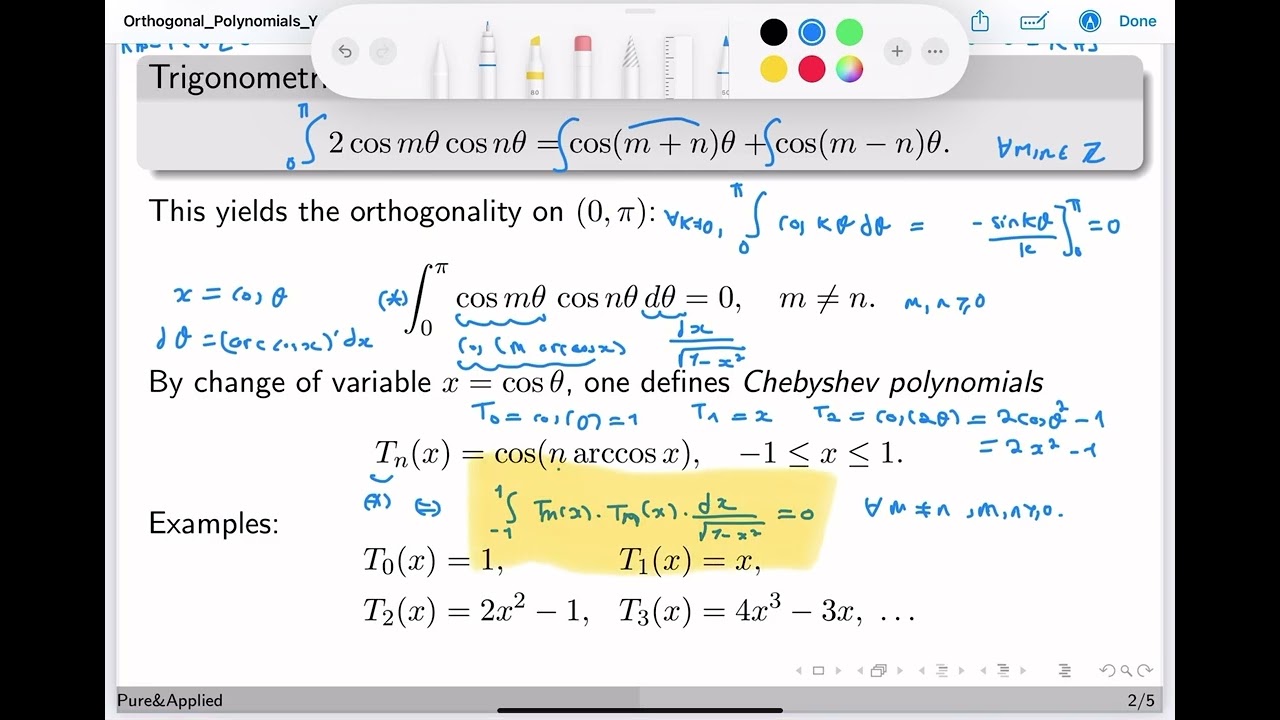 Orthogonal_Polynomials_Y
Done
Trigonometr
∫₀^π 2 cos mθ cos nθ = ∫cos(m + n)θ + ∫cos(m − n)θ. ∀ m,n ∈ ℤ
This yields the orthogonality on (0, π): ∀k≠0, ∫₀^π cos kθ dθ = - sin kθ / k ]₀^π = 0
x = cos θ
(*) ∫₀^π cos mθ cos nθ dθ = 0, m ≠ n. m, n ≥ 0
dθ = (arccos x)' dx
cos (m arccos x)
dx / √1-x²
By change of variable x = cos θ, one defines Chebyshev polynomials
T₀ = cos(0) = 1 T₁ = x T₂ = cos(2θ) = 2cosθ² - 1
= 2x² - 1
Tₙ(x) = cos(n arccos x), −1 ≤ x ≤ 1.
(*) ⇔ ∫₋₁¹ Tₙ(x) · Tₘ(x) · dx / √1-x² = 0 ∀ m ≠ n, m, n ≥ 0.
Examples:
T₀(x) = 1, T₁(x) = x,
T₂(x) = 2x² − 1, T₃(x) = 4x³ − 3x, …
Pure&Applied
2/5